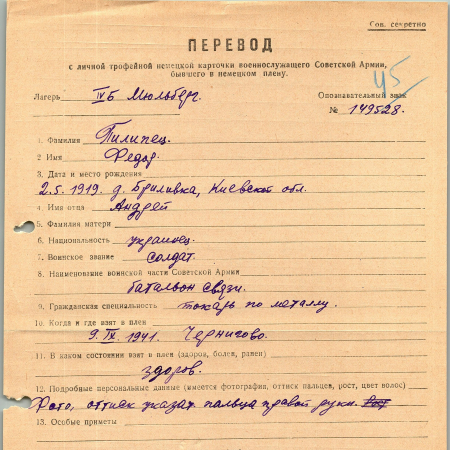 Сов. секретно
ПЕРЕВОД
с личной трофейной немецкой карточки военнослужащего Советской Армии,
бывшего в немецком плену.
45
Лагерь IVБ Мюльберг. Опознавательный знак
№ 149528.
1. Фамилия Пилипец.
2 Имя Федор.
3. Дата и место рождения
2.5.1919. д. Бриливка, Киевской обл.
4. Имя отца Андрей
5. Фамилия матери
6. Национальность украинец.
7. Воинское звание солдат.
8. Наименование воинской части Советской Армии
батальон связи.
9. Гражданская специальность токарь по металлу.
10. Когда и где взят в плен
9.IX.1941. Чернигово.
11. В каком состоянии взят в плен (здоров, болен, ранен)
здоров.
12. Подробные персональные данные (имеется фотография, оттиск пальцев, рост, цвет волос)
Фото, оттиск указат. пальца правой руки. Рост
13. Особые приметы